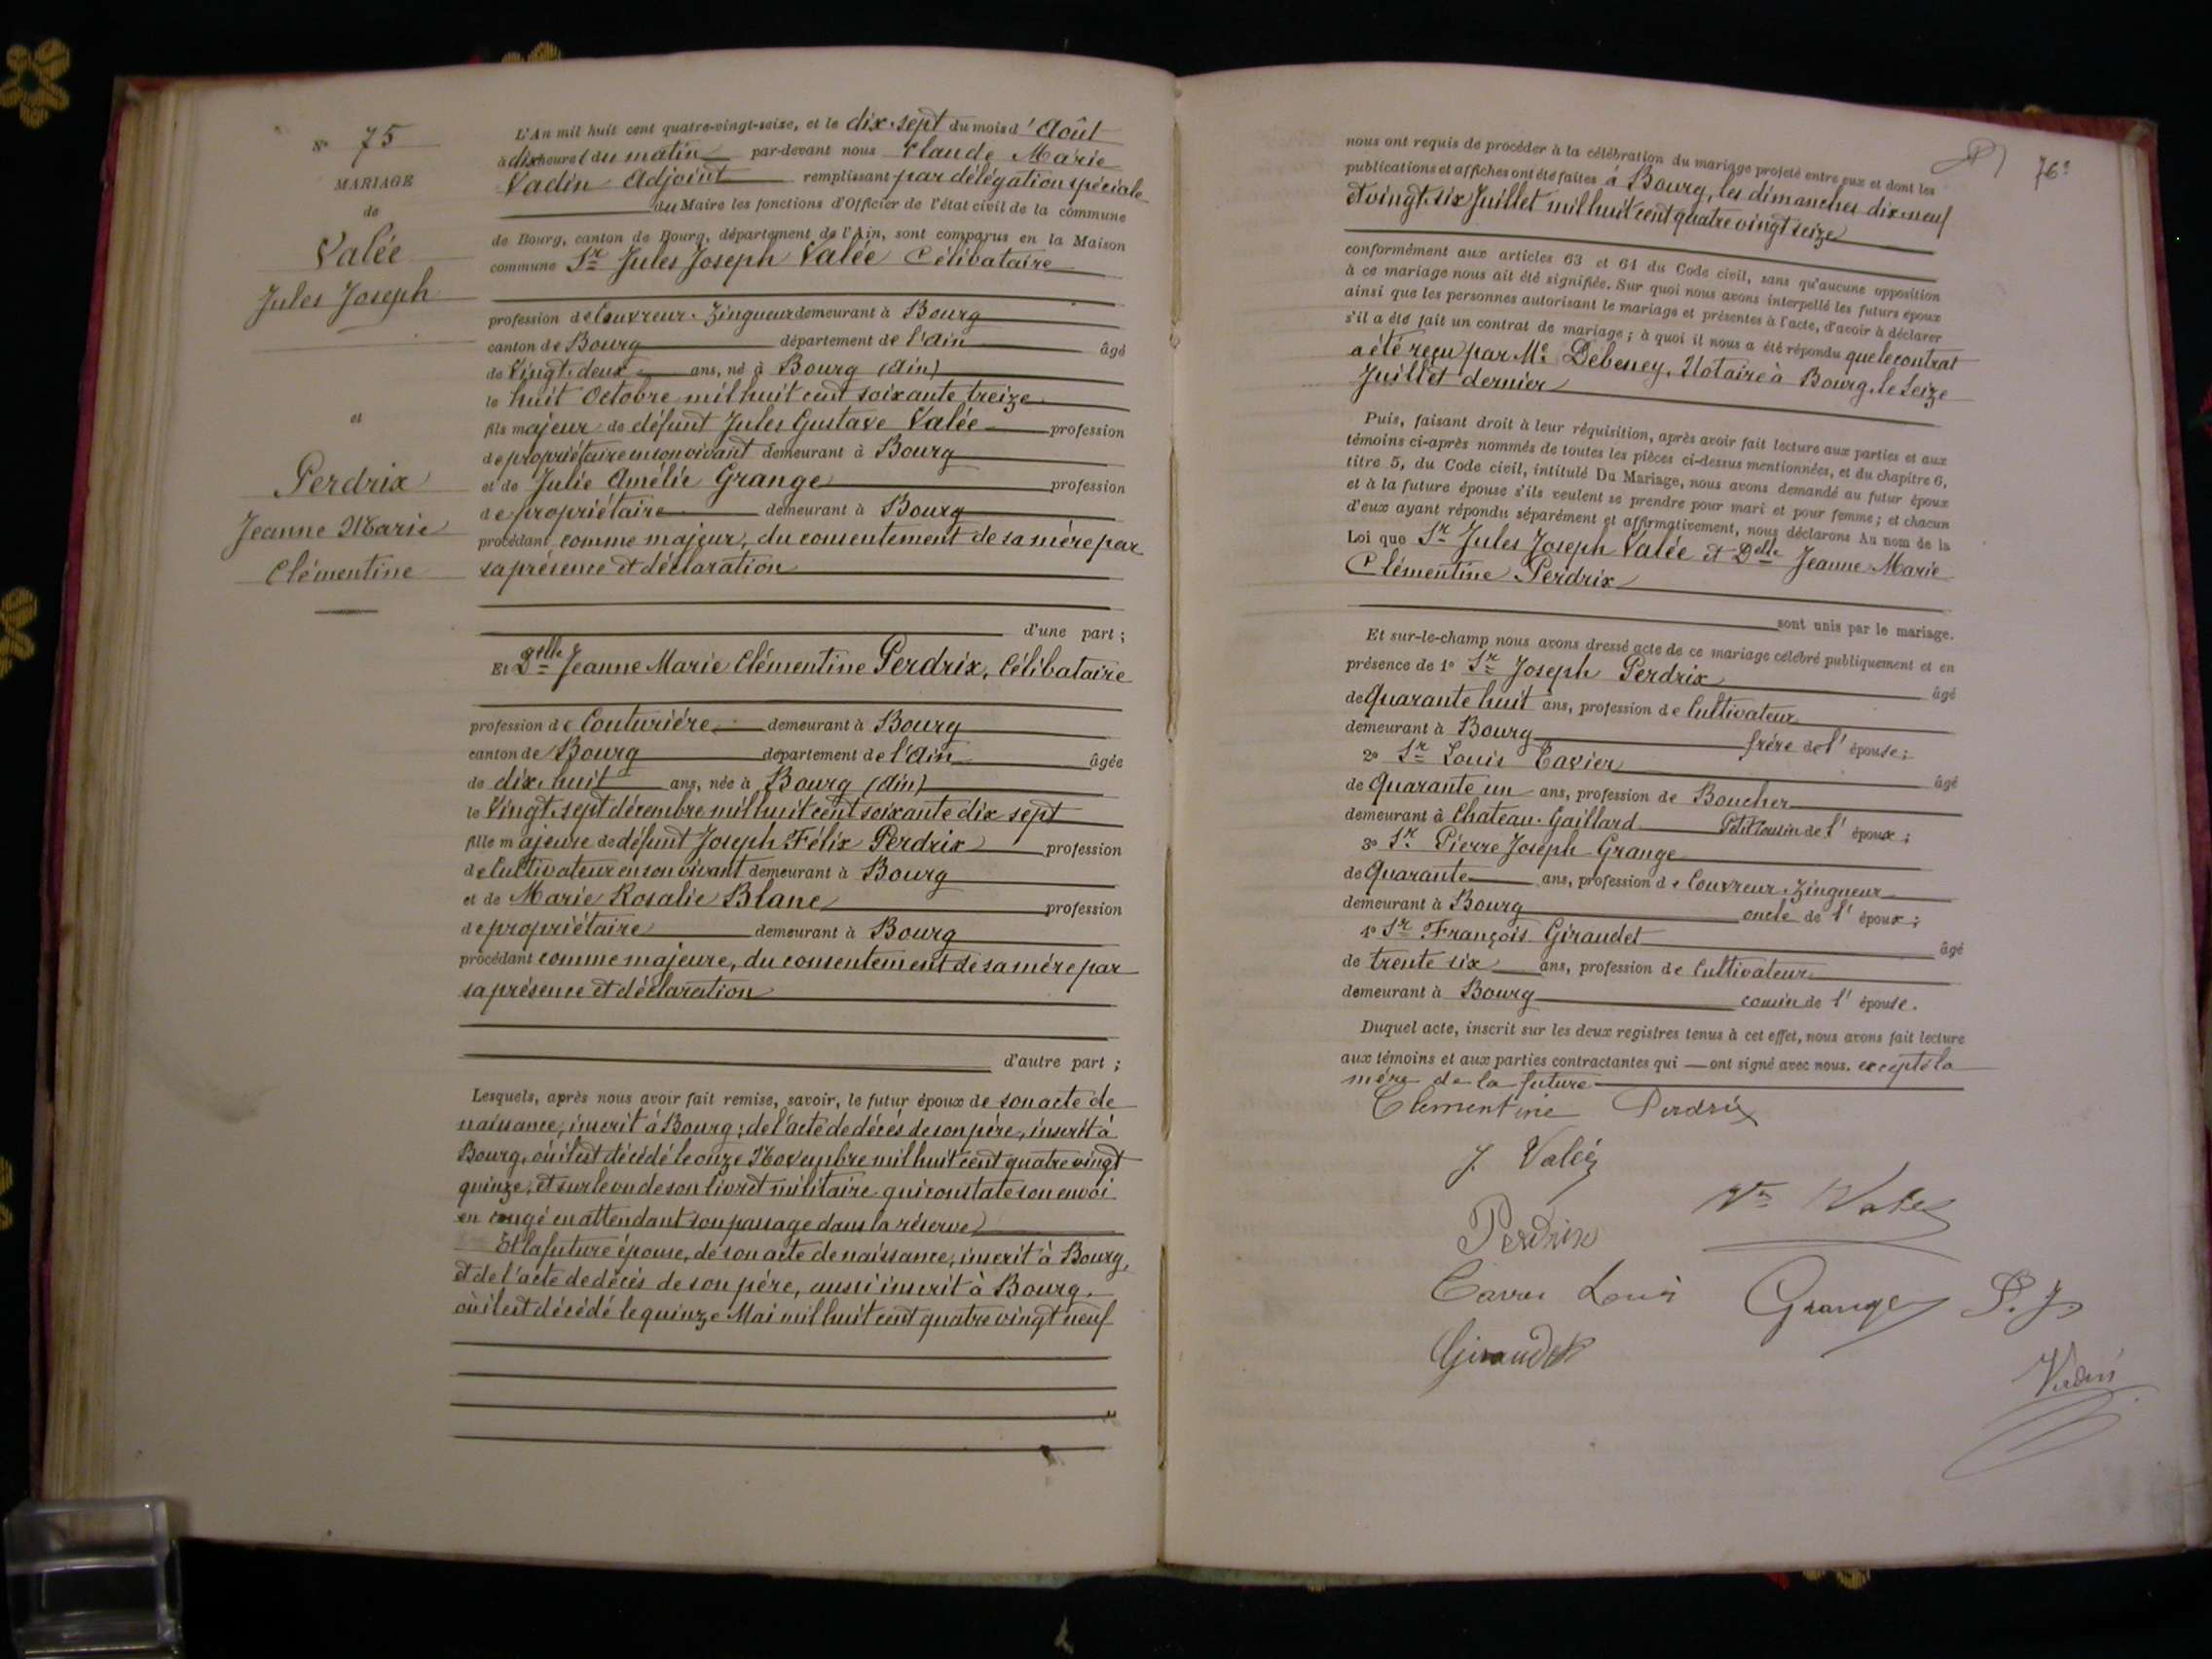 N° 75
MARIAGE
de
Valée
Jules Joseph
et
Perdrix
Jeanne Marie
Clémentine
L'An mil huit cent quatre-vingt-seize, et le dix-sept du mois d'Août
à dix heures du matin par-devant nous Claude Marie
Vadin Adjoint remplissant par délégation spéciale
du Maire les fonctions d'Officier de l'état civil de la commune
de Bourg, canton de Bourg, département de l'Ain, sont comparus en la Maison
commune Sr Jules Joseph Valée Célibataire
profession de Couvreur-Zingueur demeurant à Bourg
canton de Bourg département de l'Ain âgé
de Vingt-deux ans, né à Bourg (Ain)
le huit Octobre mil huit cent soixante treize
fils majeur de défunt Jules Gustave Valée profession
de propriétaire en son vivant demeurant à Bourg
et de Julie Amélie Grange profession
de propriétaire demeurant à Bourg
procédant comme majeur, du consentement de sa mère par
sa présence et déclaration
d'une part ;
Et Delle Jeanne Marie Clémentine Perdrix, Célibataire
profession de Couturière demeurant à Bourg
canton de Bourg département de l'Ain âgée
de dix-huit ans, née à Bourg (Ain)
le Vingt-sept décembre mil huit cent soixante dix sept
fille majeure de défunt Joseph Félix Perdrix profession
de Cultivateur en son vivant demeurant à Bourg
et de Marie Rosalie Blanc profession
de propriétaire demeurant à Bourg
procédant comme majeure, du consentement de sa mère par
sa présence et déclaration
d'autre part ;
Lesquels, après nous avoir fait remise, savoir, le futur époux de son acte de
naissance, inscrit à Bourg ; de l'acte de décès de son père, inscrit à
Bourg, où il est décédé le onze Novembre mil huit cent quatre vingt
quinze, et sur le vu de son livret militaire qui constate son envoi
en congé en attendant son passage dans la réserve
Et la future épouse, de son acte de naissance, inscrit à Bourg,
et de l'acte de décès de son père, aussi inscrit à Bourg,
où il est décédé le quinze Mai mil huit cent quatre vingt neuf
76e
nous ont requis de procéder à la célébration du mariage projeté entre eux et dont les
publications et affiches ont été faites à Bourg, les dimanches dix-neuf
et vingt-six Juillet mil huit cent quatre vingt seize
conformément aux articles 63 et 64 du Code civil, sans qu'aucune opposition
à ce mariage nous ait été signifiée. Sur quoi nous avons interpellé les futurs époux
ainsi que les personnes autorisant le mariage et présentes à l'acte, d'avoir à déclarer
s'il a été fait un contrat de mariage ; à quoi il nous a été répondu que le contrat
a été reçu par Me Debeney, Notaire à Bourg, le Seize
Juillet dernier
Puis, faisant droit à leur réquisition, après avoir fait lecture aux parties et aux
témoins ci-après nommés de toutes les pièces ci-dessus mentionnées, et du chapitre 6,
titre 5, du Code civil, intitulé Du Mariage, nous avons demandé au futur époux
et à la future épouse s'ils veulent se prendre pour mari et pour femme ; et chacun
d'eux ayant répondu séparément et affirmativement, nous déclarons Au nom de la
Loi que Sr Jules Joseph Valée et Delle Jeanne Marie
Clémentine Perdrix
sont unis par le mariage.
Et sur-le-champ nous avons dressé acte de ce mariage célébré publiquement et en
présence de 1° Sr Joseph Perdrix âgé
de Quarante huit ans, profession de Cultivateur
demeurant à Bourg frère de l'épouse ;
2° Sr Louis Cavier âgé
de Quarante un ans, profession de Boucher
demeurant à Chateau-Gaillard Petit Cousin de l'époux ;
3° Sr Pierre Joseph Grange
de Quarante ans, profession de Couvreur-Zingueur
demeurant à Bourg oncle de l'époux ;
4° Sr François Giraudet âgé
de trente six ans, profession de Cultivateur
demeurant à Bourg cousin de l'épouse.
Duquel acte, inscrit sur les deux registres tenus à cet effet, nous avons fait lecture
aux témoins et aux parties contractantes qui ont signé avec nous, excepté la
mère de la future
Clementine Perdrix
J. Valée
Ve Valée
Perdrix
Louis
Grange P. J.
Giraudet
Vadin